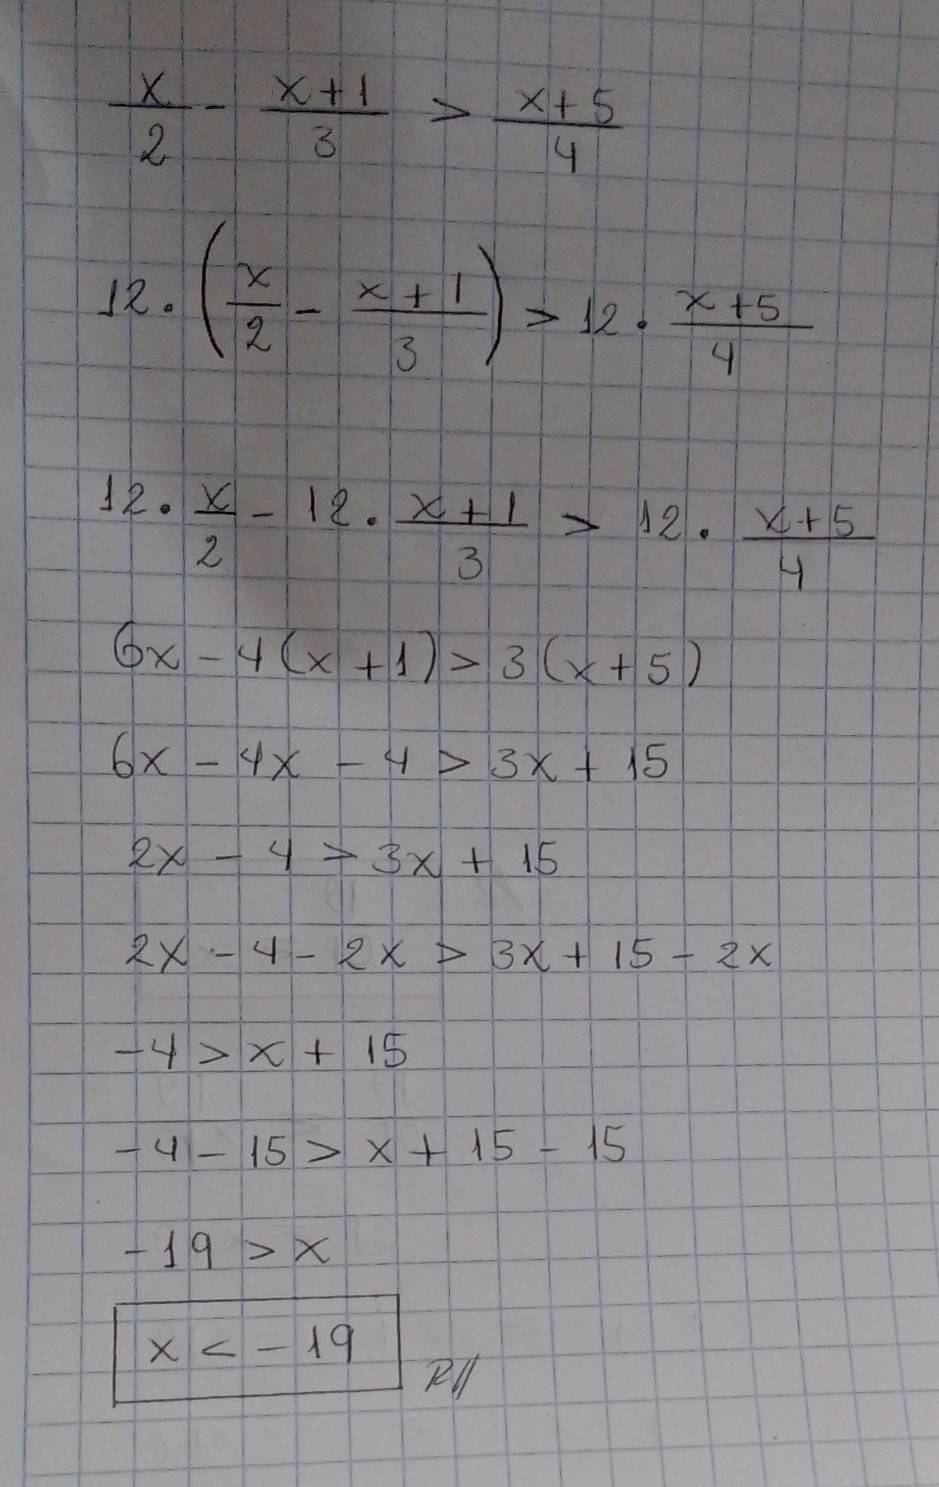 x/2 - x+1/3 > x+5/4
12. (x/2 - x+1/3) > 12. x+5/4
12. x/2 - 12. x+1/3 > 12. x+5/4
6x - 4(x+1) > 3(x+5)
6x - 4x - 4 > 3x + 15
2x - 4 > 3x + 15
2x - 4 - 2x > 3x + 15 - 2x
-4 > x + 15
-4 - 15 > x + 15 - 15
-19 > x
x < -19 R//